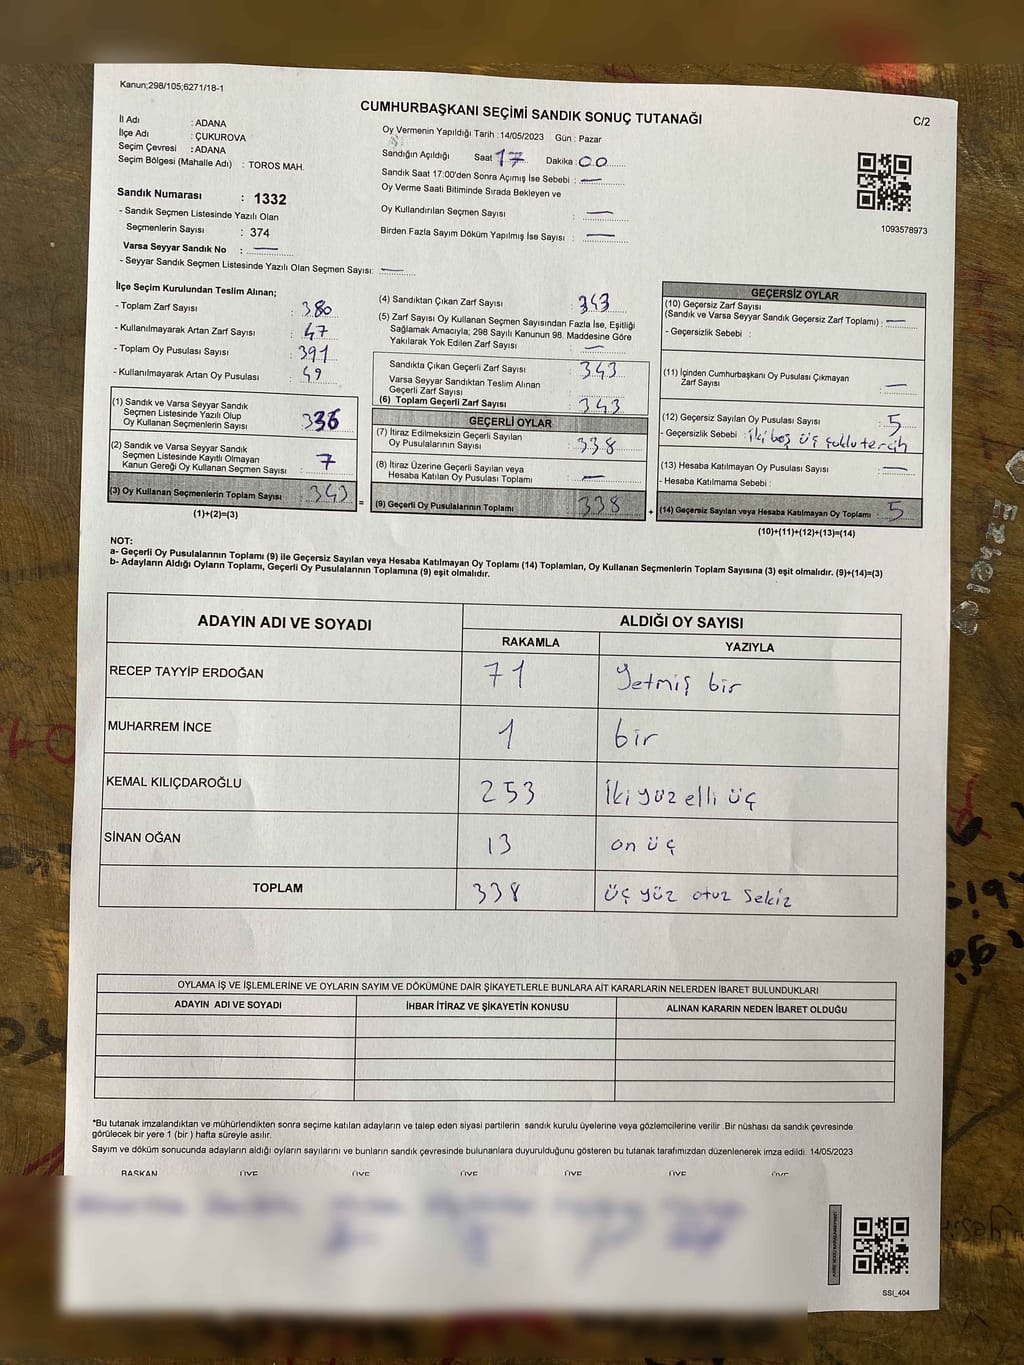 Kanun;298/105;6271/18-1
CUMHURBAŞKANI SEÇİMİ SANDIK SONUÇ TUTANAĞI
C/2
İl Adı : ADANA
İlçe Adı : ÇUKUROVA
Seçim Çevresi : ADANA
Seçim Bölgesi (Mahalle Adı) : TOROS MAH.
Sandık Numarası : 1332
- Sandık Seçmen Listesinde Yazılı Olan
Seçmenlerin Sayısı : 374
Varsa Seyyar Sandık No : —
- Seyyar Sandık Seçmen Listesinde Yazılı Olan Seçmen Sayısı: —
Oy Vermenin Yapıldığı Tarih :14/05/2023 Gün : Pazar
Sandığın Açıldığı Saat 17 Dakika 00
Sandık Saat 17:00'den Sonra Açmış İse Sebebi : —
Oy Verme Saati Bitiminde Sırada Bekleyen ve
Oy Kullandırılan Seçmen Sayısı : —
Birden Fazla Sayım Döküm Yapılmış İse Sayısı : —
1093578973
İlçe Seçim Kurulundan Teslim Alınan;
- Toplam Zarf Sayısı : 380
- Kullanılmayarak Artan Zarf Sayısı : 47
- Toplam Oy Pusulası Sayısı : 391
- Kullanılmayarak Artan Oy Pusulası : 49
(1) Sandık ve Varsa Seyyar Sandık
Seçmen Listesinde Yazılı Olup
Oy Kullanan Seçmenlerin Sayısı : 336
(2) Sandık ve Varsa Seyyar Sandık
Seçmen Listesinde Kayıtlı Olmayan
Kanun Gereği Oy Kullanan Seçmen Sayısı : 7
(3) Oy Kullanan Seçmenlerin Toplam Sayısı : 343
(1)+(2)=(3)
(4) Sandıktan Çıkan Zarf Sayısı : 343
(5) Zarf Sayısı Oy Kullanan Seçmen Sayısından Fazla İse, Eşitliği
Sağlamak Amacıyla; 298 Sayılı Kanunun 98. Maddesine Göre
Yakılarak Yok Edilen Zarf Sayısı : —
Sandıkta Çıkan Geçerli Zarf Sayısı : 343
Varsa Seyyar Sandıktan Teslim Alınan
Geçerli Zarf Sayısı :
(6) Toplam Geçerli Zarf Sayısı : 343
GEÇERLİ OYLAR
(7) İtiraz Edilmeksizin Geçerli Sayılan
Oy Pusulalarının Sayısı : 338
(8) İtiraz Üzerine Geçerli Sayılan veya
Hesaba Katılan Oy Pusulası Toplamı : —
= (9) Geçerli Oy Pusulalarının Toplamı : 338 +
GEÇERSİZ OYLAR
(10) Geçersiz Zarf Sayısı
(Sandık ve Varsa Seyyar Sandık Geçersiz Zarf Toplamı) : —
- Geçersizlik Sebebi :
(11) İçinden Cumhurbaşkanı Oy Pusulası Çıkmayan
Zarf Sayısı : —
(12) Geçersiz Sayılan Oy Pusulası Sayısı : 5
- Geçersizlik Sebebi : iki boş üç çoklu tercih
(13) Hesaba Katılmayan Oy Pusulası Sayısı : —
- Hesaba Katılmama Sebebi :
(14) Geçersiz Sayılan veya Hesaba Katılmayan Oy Toplamı : 5
(10)+(11)+(12)+(13)=(14)
NOT:
a- Geçerli Oy Pusulalarının Toplamı (9) ile Geçersiz Sayılan veya Hesaba Katılmayan Oy Toplamı (14) Toplamları, Oy Kullanan Seçmenlerin Toplam Sayısına (3) eşit olmalıdır. (9)+(14)=(3)
b- Adayların Aldığı Oyların Toplamı, Geçerli Oy Pusulalarının Toplamına (9) eşit olmalıdır.
ADAYIN ADI VE SOYADI ALDIĞI OY SAYISI
RAKAMLA YAZIYLA
RECEP TAYYİP ERDOĞAN 71 Yetmiş bir
MUHARREM İNCE 1 bir
KEMAL KILIÇDAROĞLU 253 İki yüz elli üç
SİNAN OĞAN 13 on üç
TOPLAM 338 üç yüz otuz sekiz
OYLAMA İŞ VE İŞLEMLERİNE VE OYLARIN SAYIM VE DÖKÜMÜNE DAİR ŞİKAYETLERLE BUNLARA AİT KARARLARIN NELERDEN İBARET BULUNDUKLARI
ADAYIN ADI VE SOYADI İHBAR İTİRAZ VE ŞİKAYETİN KONUSU ALINAN KARARIN NEDEN İBARET OLDUĞU
*Bu tutanak imzalandıktan ve mühürlendikten sonra seçime katılan adayların ve talep eden siyasi partilerin sandık kurulu üyelerine veya gözlemcilerine verilir .Bir nüshası da sandık çevresinde
görülecek bir yere 1 (bir ) hafta süreyle asılır.
Sayım ve döküm sonucunda adayların aldığı oyların sayılarını ve bunların sandık çevresinde bulunanlara duyurulduğunu gösteren bu tutanak tarafımızdan düzenlenerek imza edildi. 14/05/2023
BAŞKAN ÜYE ÜYE ÜYE ÜYE ÜYE ÜYE
SSI_404